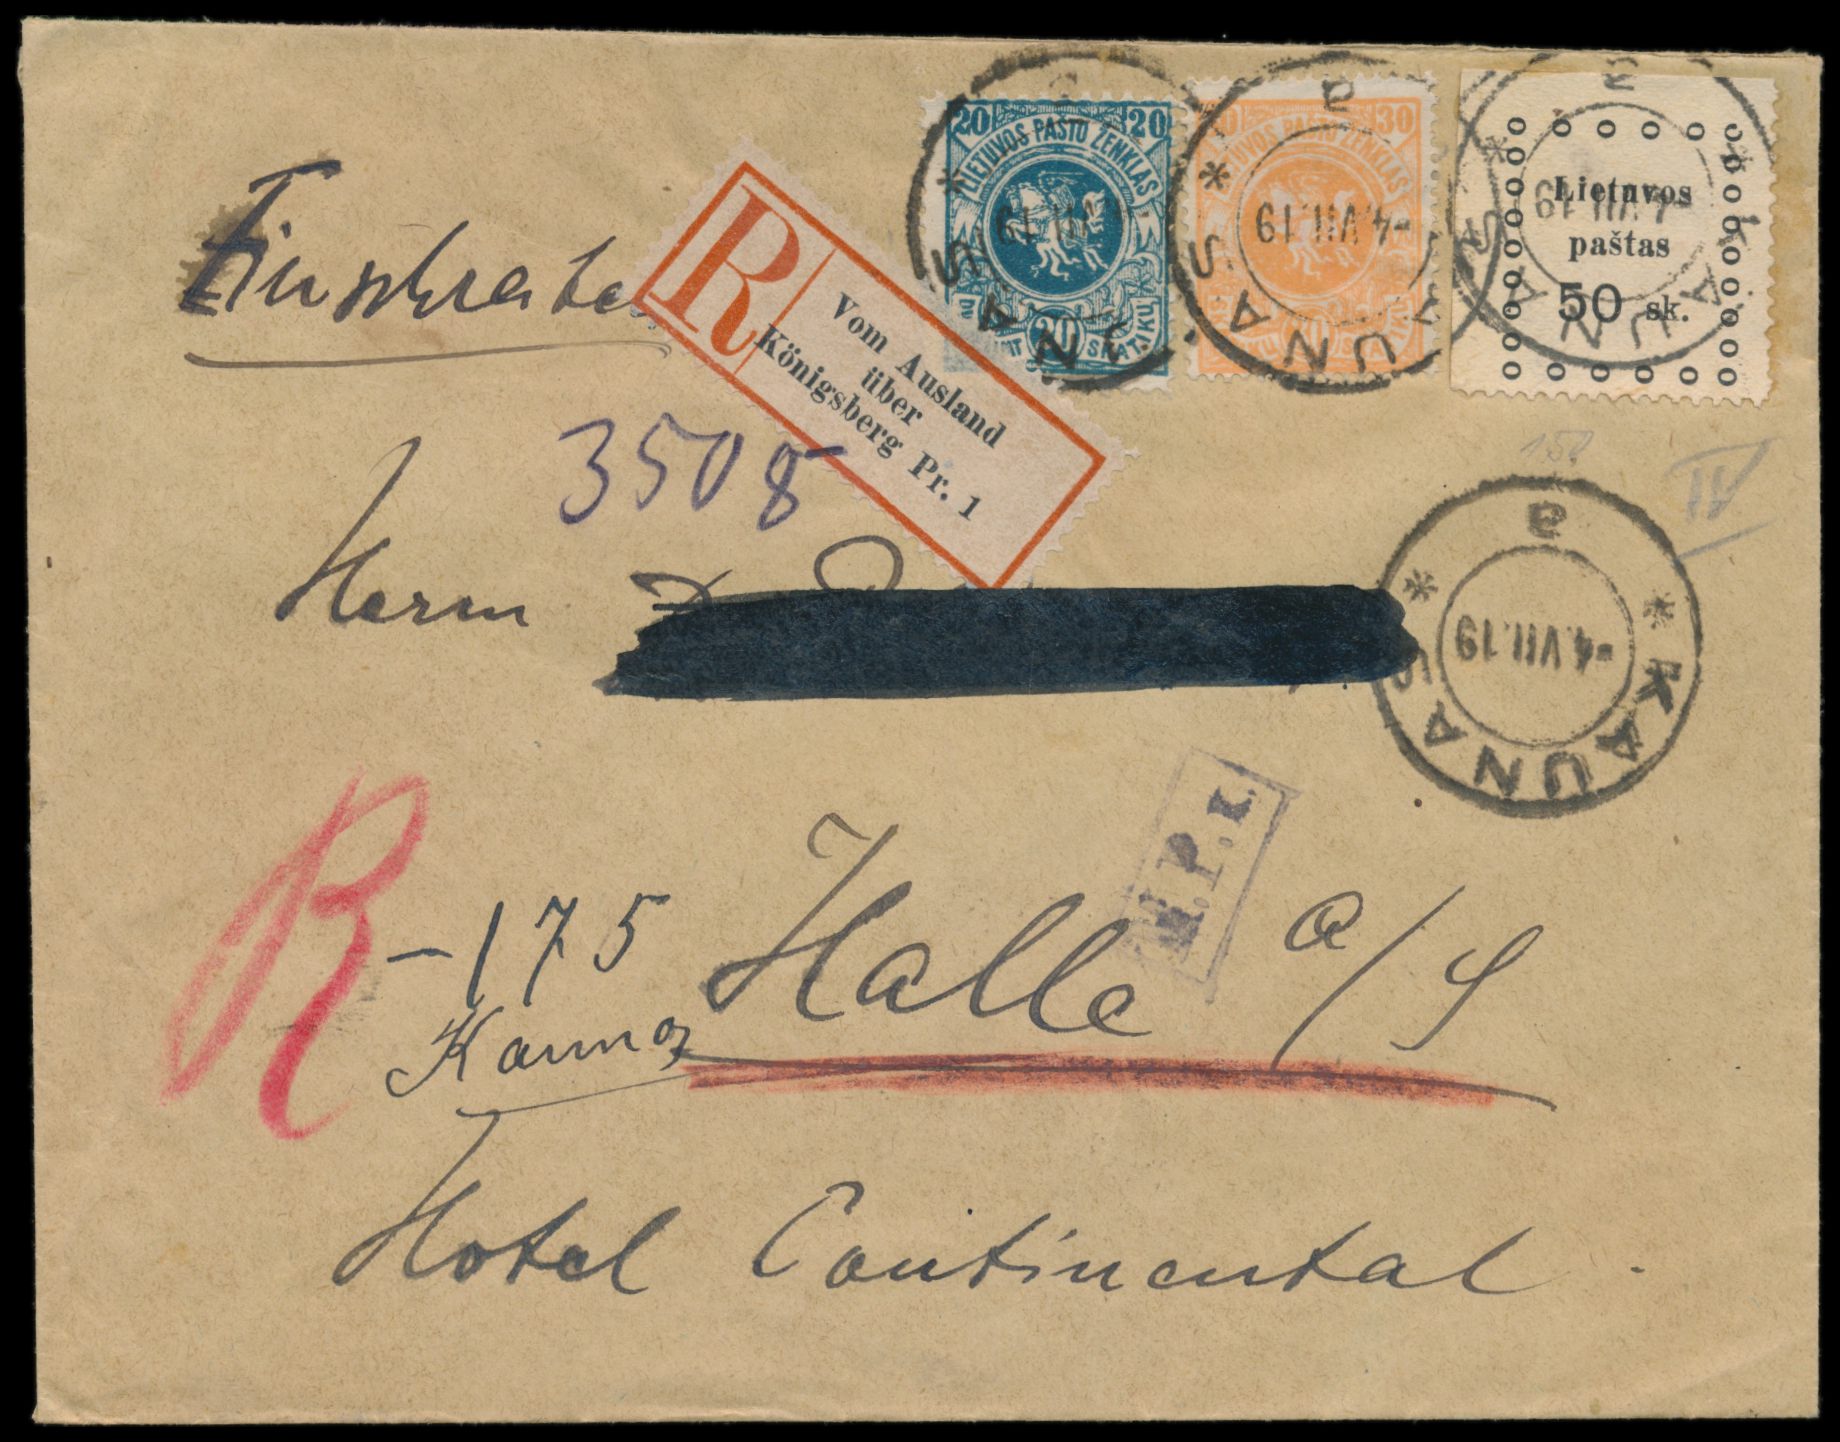 Einschreiben
R
Vom Ausland
über
Königsberg Pr. 1
3508
20 20
LIETUVOS PAŠTO ŽENKLAS
20
SKATIKŲ
30
LIETUVOS PAŠTO ŽENKLAS
SKATIKŲ
Lietuvos
paštas
50 sk.
KAUNAS
-4.VII.19
a
KAUNAS
-4.VII.19
a
KAUNAS
-4.VII.19
a
* KAUNAS *
-4.VII.19
a
IV
Herrn D
M.P.1.
R -175
Kaunas
Halle a/S
Hotel Continental.